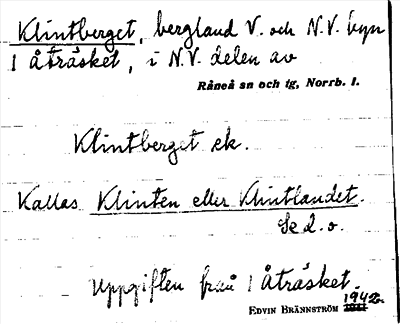 Klintberget, bergland V. och N.V. byn
1 Åträsket, i N.V. delen av
Råneå sn och tg, Norrb. l.
Klintberget ek.
Kallas Klinten eller Klintlandet.
Se d. o.
Uppgiften från 1 Åträsket.
EDVIN BRÄNNSTRÖM 1942